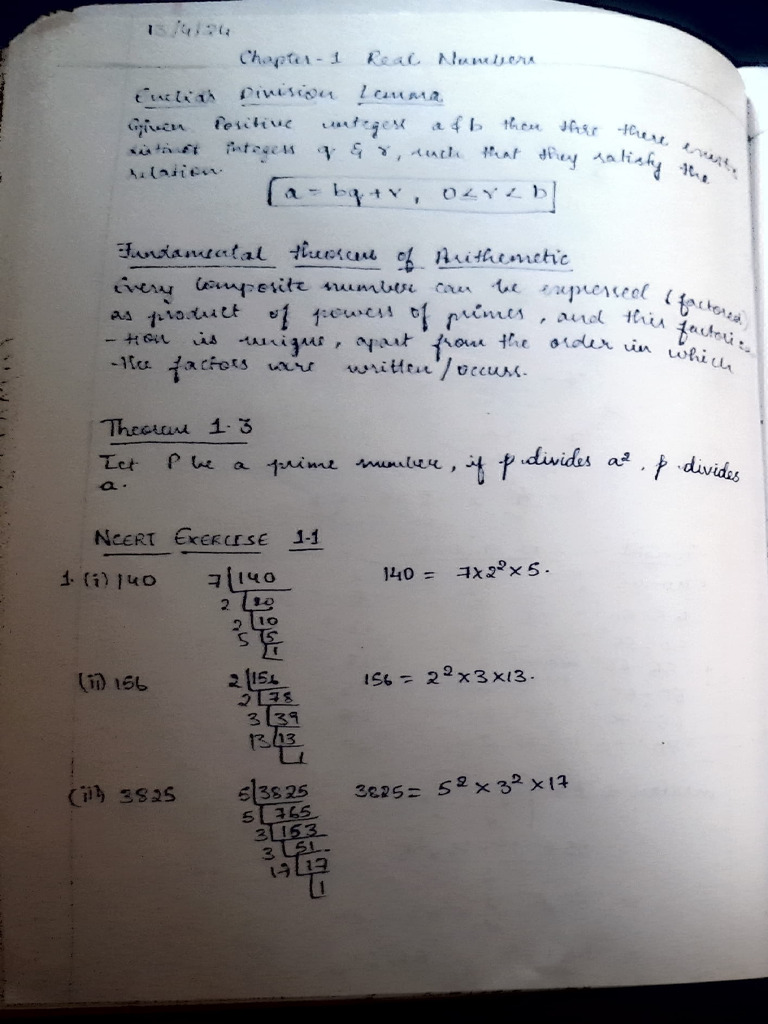 13/4/24
Chapter-1 Real Numbers
Euclid's Division Lemma
Given Positive integess a & b then there there exists
distinct integess q & r, such that they satisfy the
relation.
a = bq + r, 0 < r < b
Fundamental theorem of Arithemetic
Every Composite number can be expressed (factored)
as product of powess of primes, and this factorica
-tion is unique, apart from the order in which
-the factors are written / occurs.
Theorem 1.3
Let P be a prime number, if p divides a², p divides
a.
NCERT EXERCISE 1.1
1. (i) 140 7 140 140 = 7×2²×5.
2 20
2 10
5 5
1
(ii) 156 2 156 156 = 2²×3×13.
2 78
3 39
13 13
1
(iii) 3825 5 3825 3825 = 5²×3²×17
5 765
3 153
3 51
17 17
1